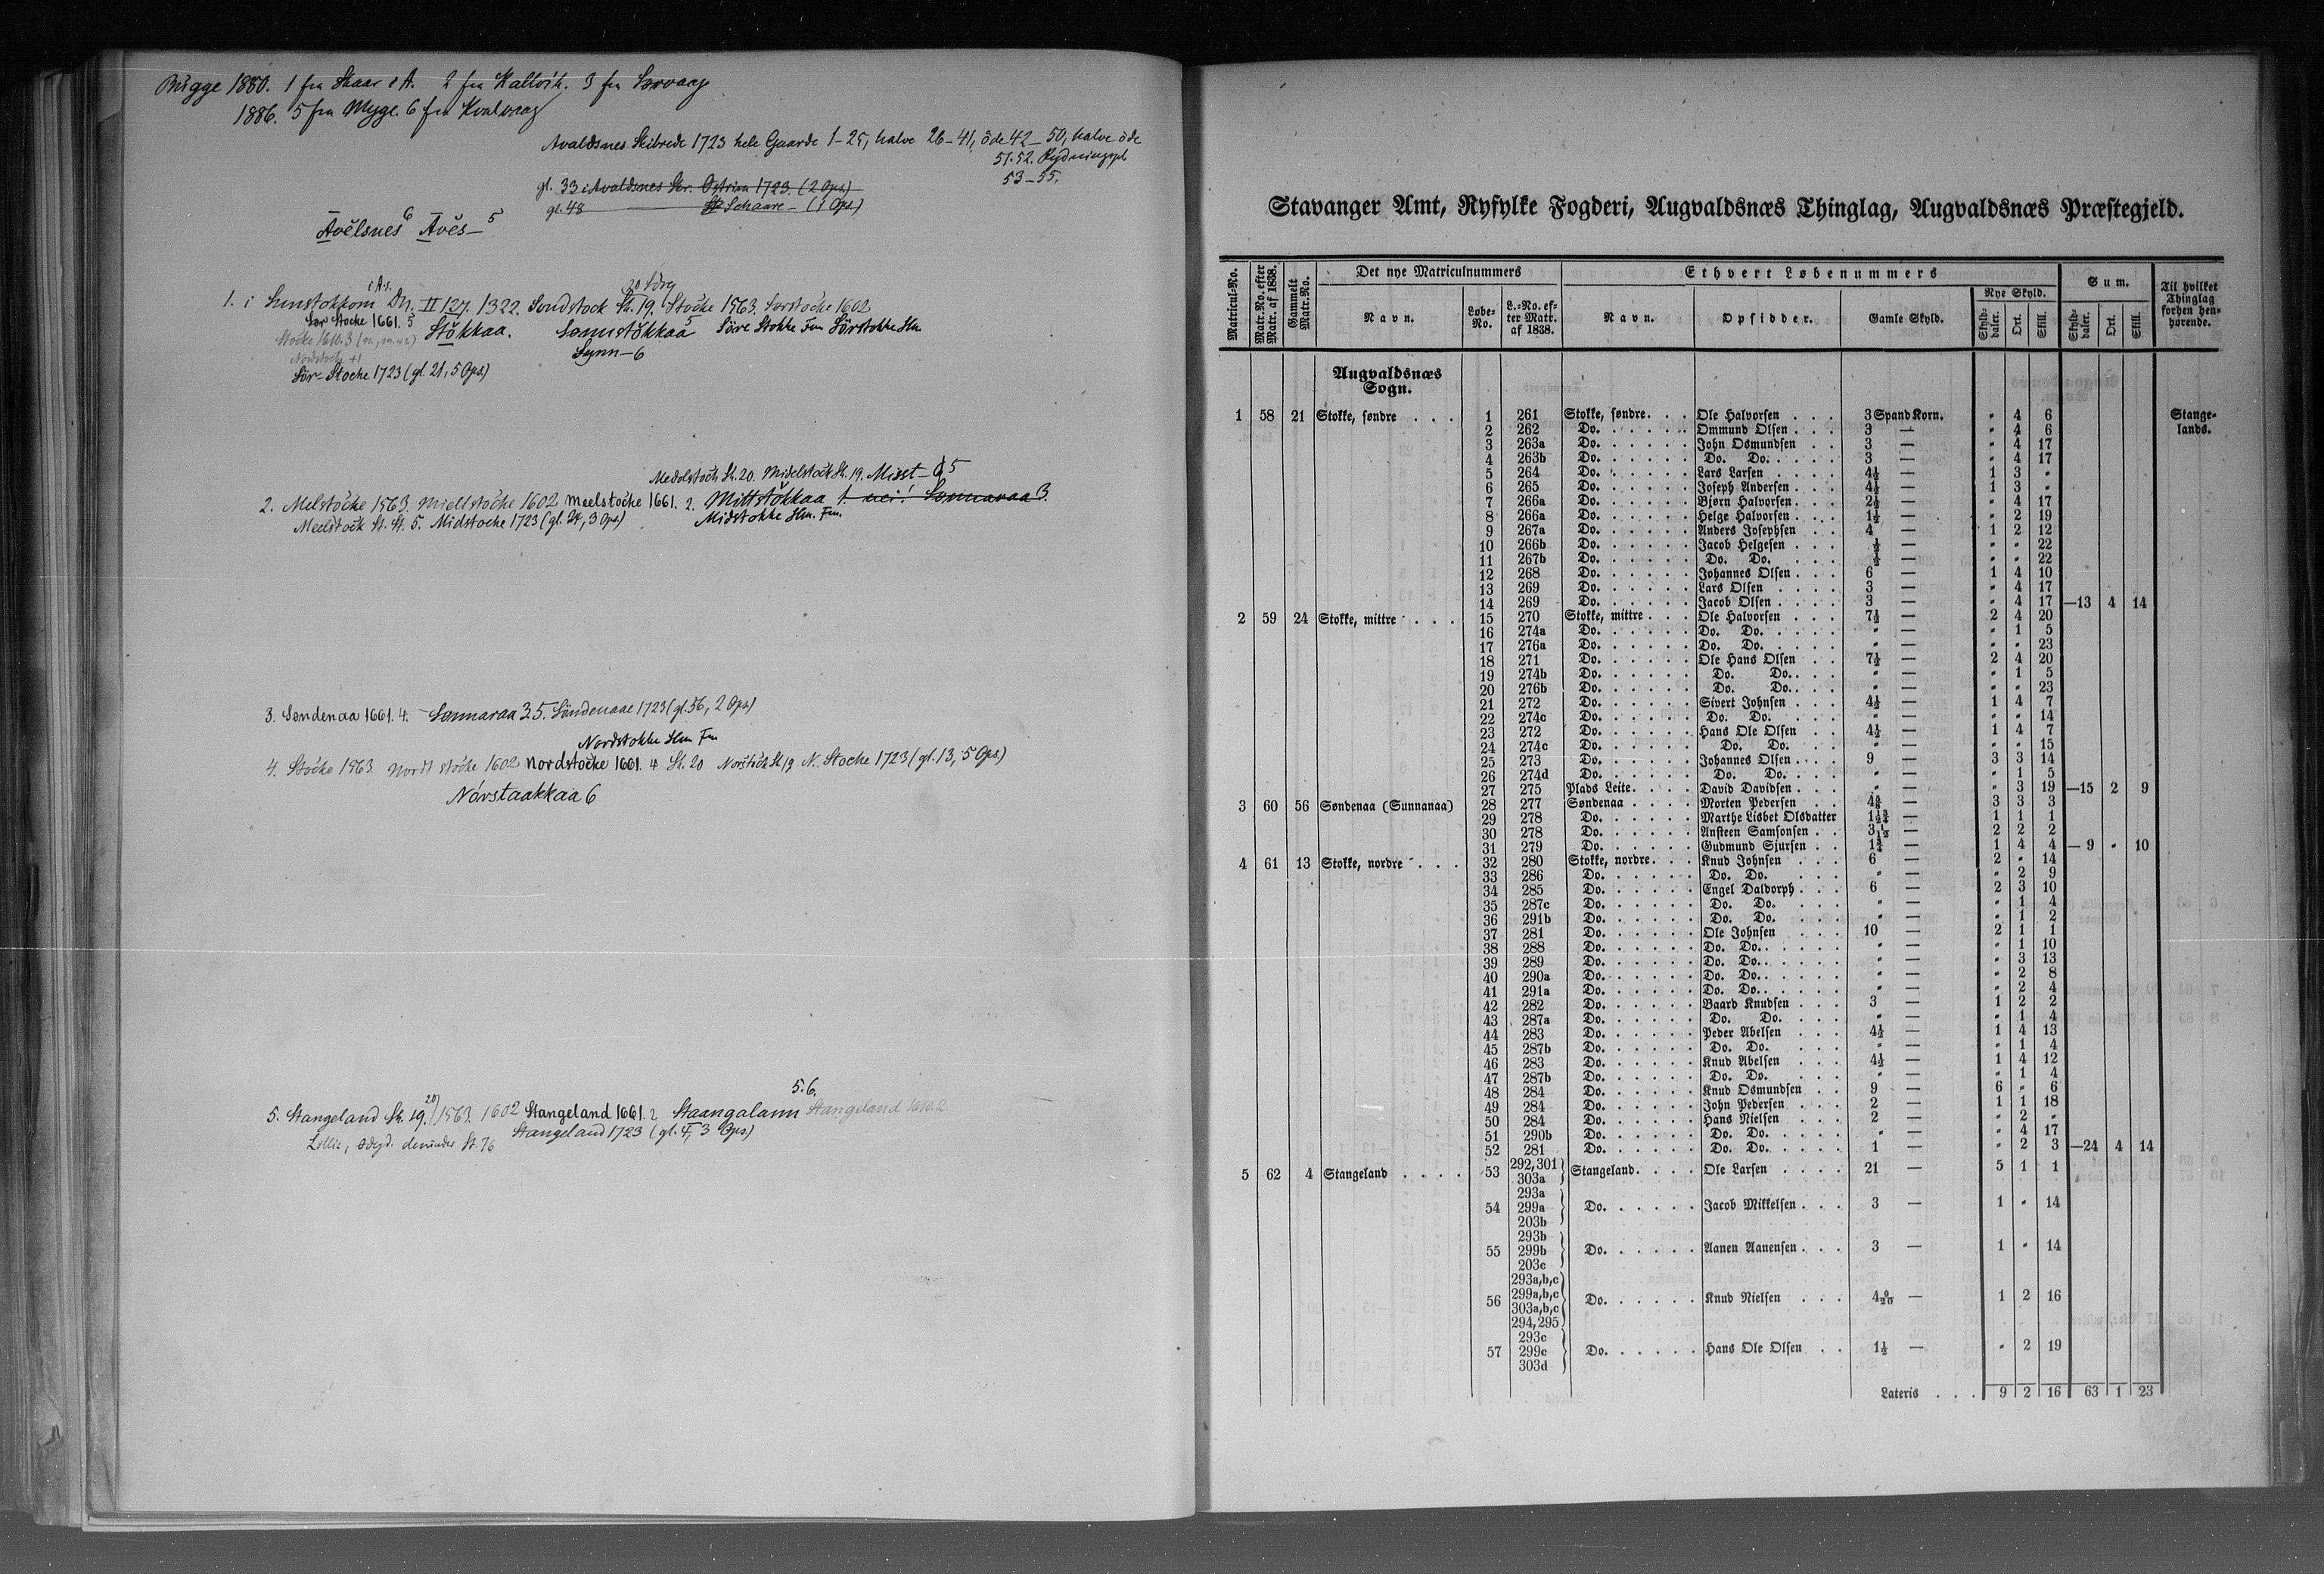 Bugge 1880. 1 fra Skaar i A. 2 fra Kallvik. 3 fra Sørvaag
1886. 5 fra Myge. 6 fra Kvalvaag
Avaldsnes Skibrede 1723 hele Gaarde 1-25, halve 26-41, öde 42-50, halve öde
51.52. Rydningspl
53-55.
gl. 33 i Avaldsnes Skr. 1723 (2 Ops.)
gl. 48 Schaare - (1 Ops.)
Avĕlsnes 6 Avĕs- 5
1. i Sunstokkom i As. DN. II 127. 1322. Sondstock St. 19. Stöcke 1563. Sørstocke 1602
Sør Stocke 1661. 5 Stŏkkaa. Sønnstŏkkaa 5 Söre Stokke Fm Sörstokke Hm
Synn- 6
Sör-Stocke 1723 (gl. 21, 5 Ops.)
Medelstöch St. 20. Midelstöck St. 19. Misst- 5
2. Melstöcke 1563. Miellstöcke 1602 Meelstocke 1661. 2. Mittstŏkkaa 1. nei! Sønnaraa 3.
Meelstöck St. 5. Midstocke 1723 (gl. 24, 3 Ops.) Midstokke Hm. Fm.
3. Søndenaa 1661. 4. Sønnaraa 3.5. Söndenaae 1723 (gl. 56, 2 Ops.)
Nordstokke Hm Fm
4. Stöcke 1563 Nordt stöcke 1602 Nordstocke 1661. 4 St. 20 Norstöck St 19 N. Stocke 1723 (gl. 13, 5 Ops.)
Nórstaakkaa 6
5.6.
5. Stangeland St. 19. 20 / 1563. 1602 Stangeland 1661. 2 Staangalann Stangeland 1610. 2
Stangeland 1723 (gl. 4, 3 Ops.)
Stavanger Amt, Ryfylke Fogderi, Augvaldsnæs Thinglag, Augvaldsnæs Præstegjeld.
Matricul-No. Matr.No. efter Matr. af 1838. Gammelt Matr.No. Det nye Matriculnummers Ethvert Løbenummers Sum. Til hvilket Thinglag forhen henhørende.
Navn. Løbe-No. L.-No. efter Matr. af 1838. Navn. Opsidder. Gamle Skyld. Nye Skyld. Skylddaler. Ort. Skill. Skylddaler. Ort. Skill.
Augvaldsnæs
Sogn.
1 58 21 Stokke, søndre . . . 1 261 Stokke, søndre. . . Ole Halvorsen . . . 3 Spand Korn. " 4 6 Stange-
2 262 Do. . . . . . Ommund Olsen . . . 3 — " 4 6 lands.
3 263a Do. . . . . . John Osmundsen . . 3 — " 4 17
4 263b Do. . . . . . Do. Do. . . . . 3 — " 4 17
5 264 Do. . . . . . Lars Larsen . . . . 4½ — 1 3 "
6 265 Do. . . . . . Joseph Andersen . . . 4½ — 1 3 "
7 266a Do. . . . . . Bjørn Halvorsen. . . 2½ — " 4 17
8 266a Do. . . . . . Helge Halvorsen . . . 1½ — " 2 19
9 267a Do. . . . . . Anders Josephsen . . 4 — 1 2 12
10 266b Do. . . . . . Jacob Helgesen . . . ½ — " " 22
11 267b Do. . . . . . Do. Do. . . . . ½ — " " 22
12 268 Do. . . . . . Johannes Olsen . . . 6 — 1 4 10
13 269 Do. . . . . . Lars Olsen . . . . 3 — " 4 17
14 269 Do. . . . . . Jacob Olsen . . . . 3 — " 4 17 —13 4 14
2 59 24 Stokke, mittre . . . . 15 270 Stokke, mittre . . . Ole Halvorsen . . . 7½ — 2 4 20
16 274a Do. . . . . . Do. Do. . . . . " — " 1 5
17 276a Do. . . . . . Do. Do. . . . . " — " " 23
18 271 Do. . . . . . Ole Hans Olsen . . 7½ — 2 4 20
19 274b Do. . . . . . Do. Do. . . . " — " 1 5
20 276b Do. . . . . . Do. Do. . . . " — " " 23
21 272 Do. . . . . . Sivert Johnsen . . . 4½ — 1 4 7
22 274c Do. . . . . . Do. Do. . . . " — " " 14
23 272 Do. . . . . . Hans Ole Olsen . . 4½ — 1 4 7
24 274c Do. . . . . . Do. Do. . . . " — " " 15
25 273 Do. . . . . . Johannes Olsen . . . 9 — 3 3 14
26 274d Do. . . . . . Do. Do. . . . " — " 1 5
27 275 Plads Leite. . . . David Davidsen . . . " — " 3 19 —15 2 9
3 60 56 Søndenaa (Sunnanaa) 28 277 Søndenaa . . . . Morten Pedersen . . — 3 3 3
29 278 Do. . . . . . Marthe Lisbet Olsdatter — 1 1 1
30 278 Do. . . . . . Ansteen Samsonsen . . — 2 2 2
31 279 Do. . . . . . Gudmund Sjursen . . — 1 4 4 — 9 " 10
4 61 13 Stokke, nordre . . . 32 280 Stokke, nordre. . . Knud Johnsen . . . 6 — 2 " 14
33 286 Do. . . . . . Do. Do. . . . " — " 2 9
34 285 Do. . . . . . Engel Daldorph . . . 6 — 2 3 10
35 287c Do. . . . . . Do. Do. . . . " — " 1 4
36 291b Do. . . . . . Do. Do. . . . " — " 1 2
37 281 Do. . . . . . Ole Johnsen . . . 10 — 2 1 1
38 288 Do. . . . . . Do. Do. . . . . " — " 1 10
39 289 Do. . . . . . Do. Do. . . . . " — " 3 13
40 290a Do. . . . . . Do. Do. . . . . " — " 2 8
41 291a Do. . . . . . Do. Do. . . . . " — " 2 4
42 282 Do. . . . . . Baard Knudsen . . . 3 — 1 2 2
43 287a Do. . . . . . Do. Do. . . . " — " 1 4
44 283 Do. . . . . . Peder Abelsen . . . 4½ — 1 4 13
45 287b Do. . . . . . Do. Do. . . . " — " 1 4
46 283 Do. . . . . . Knud Abelsen . . . 4½ — 1 4 12
47 287b Do. . . . . . Do. Do. . . . " — " 1 4
48 284 Do. . . . . . Knud Osmundsen . . 9 — 6 " 6
49 284 Do. . . . . . John Pedersen . . . 2 — 1 1 18
50 284 Do. . . . . . Hans Nielsen . . . 2 — " 2 "
51 290b Do. . . . . . Do. Do. . . . . " — " 4 17
52 281 Do. . . . . . Do. Do. . . . . 1 — " 2 3 —24 4 14
5 62 4 Stangeland . . . . 53 292,301 303a Stangeland. . . . Ole Larsen . . . . 21 — 5 1 1
54 293a 299a 203b Do. . . . . . Jacob Mikkelsen . . . 3 — 1 " 14
55 293b 299b 203c Do. . . . . . Aanen Aanensen . . . 3 — 1 " 14
56 293a,b,c 299a,b,c 303a,b,c 294,295 Do. . . . . . Knud Nielsen . . . — 1 2 16
57 293c 299c 303d Do. . . . . . Hans Ole Olsen . . 1½ — " 2 19
Lateris . . . 9 2 16 63 1 23